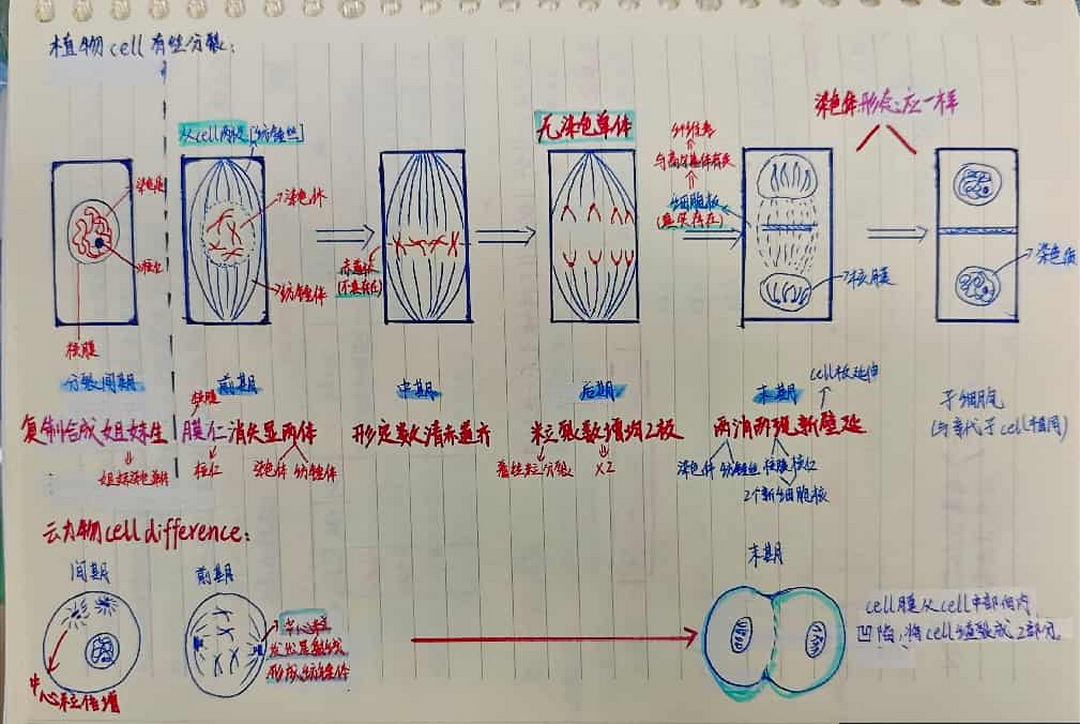 植物cell有丝分裂:
染色体形态:应一样
从cell两极[纺锤丝]
无染色单体
纤维素
与高尔基体有关
细胞板
(真实存在)
染色质
核仁
核膜
染色体
纺锤体
赤道板
(不真存在)
核膜
染色质
分裂间期
前期
中期
后期
末期
cell板延伸
子细胞
(与亲代子cell相同)
复制合成姐妹生
核膜
膜仁消失显两体
形定数清赤道齐
粒裂数增均2极
两消两现新壁延
姐妹染色单体
核仁
染色体 纺锤体
着丝粒分裂
×2
染色体 纺锤丝 核膜 核仁
2个新细胞核
动物cell difference:
间期
前期
末期
中心粒倍增
中心粒
发出星射线
形成纺锤体
cell膜从cell中部向内
凹陷,将cell缢裂成2部分.